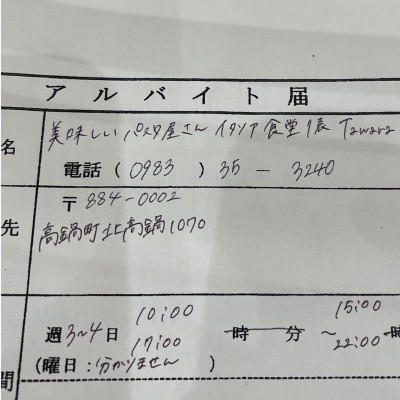 アルバイト届
名 美味しいパスタ屋さん イタリア食堂 俵 Tawara
電話 (0983) 35 - 3240
先 〒884-0002
高鍋町北高鍋1070
10:00 15:00
週3~4日 時 分 ~ 時
17:00 22:00
(曜日:分かりません)
間